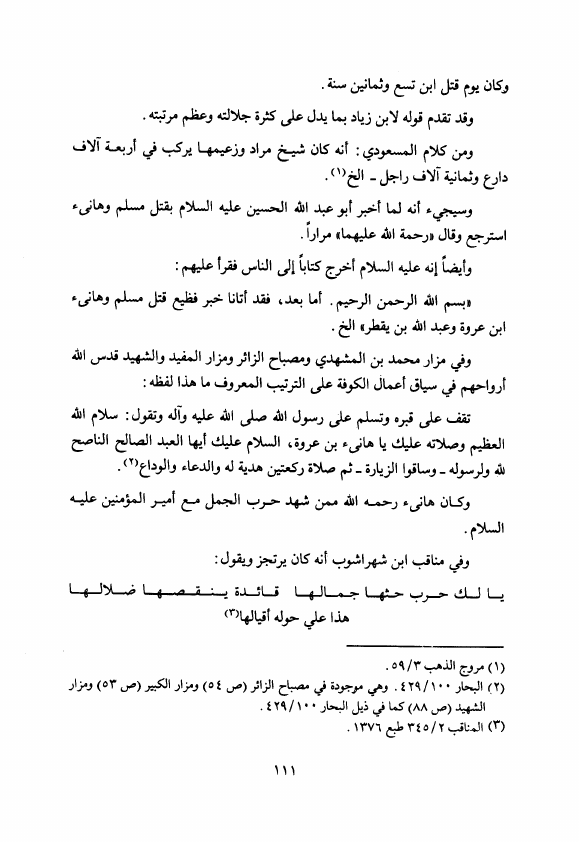 وكان يوم قتل ابن تسع وثمانين سنة.
وقد تقدم قوله لابن زياد بما يدل على كثرة جلالته وعظم مرتبته.
ومن كلام المسعودي: أنه كان شيخ مراد وزعيمها يركب في أربعة آلاف
دارع وثمانية آلاف راجل ـ الخ(١).
وسيجيء أنه لما أخبر أبو عبد الله الحسين عليه السلام بقتل مسلم وهانىء
استرجع وقال «رحمة الله عليهما» مراراً.
وأيضاً إنه عليه السلام أخرج كتاباً إلى الناس فقرأ عليهم:
«بسم الله الرحمن الرحيم. أما بعد، فقد أتانا خبر فظيع قتل مسلم وهانىء
ابن عروة وعبد الله بن يقطر» الخ.
وفي مزار محمد بن المشهدي ومصباح الزائر ومزار المفيد والشهيد قدس الله
أرواحهم في سياق أعمال الكوفة على الترتيب المعروف ما هذا لفظه:
تقف على قبره وتسلم على رسول الله صلى الله عليه وآله وتقول: سلام الله
العظيم وصلاته عليك يا هانىء بن عروة، السلام عليك أيها العبد الصالح الناصح
لله ولرسوله ـ وساقوا الزيارة ـ ثم صلاة ركعتين هدية له والدعاء والوداع(٢).
وكان هانىء رحمه الله ممن شهد حرب الجمل مع أمير المؤمنين عليه
السلام.
وفي مناقب ابن شهراشوب أنه كان يرتجز ويقول:
يا لك حرب حثها جمالها قائدة ينقصها ضلالها
هذا علي حوله أقيالها(٣)
(١) مروج الذهب ٥٩/٣.
(٢) البحار ٤٢٩/١٠٠. وهي موجودة في مصباح الزائر (ص ٥٤) ومزار الكبير (ص ٥٣) ومزار
الشهيد (ص ٨٨) كما في ذيل البحار ٤٢٩/١٠٠.
(٣) المناقب ٣٤٥/٢ طبع ١٣٧٦.
١١١